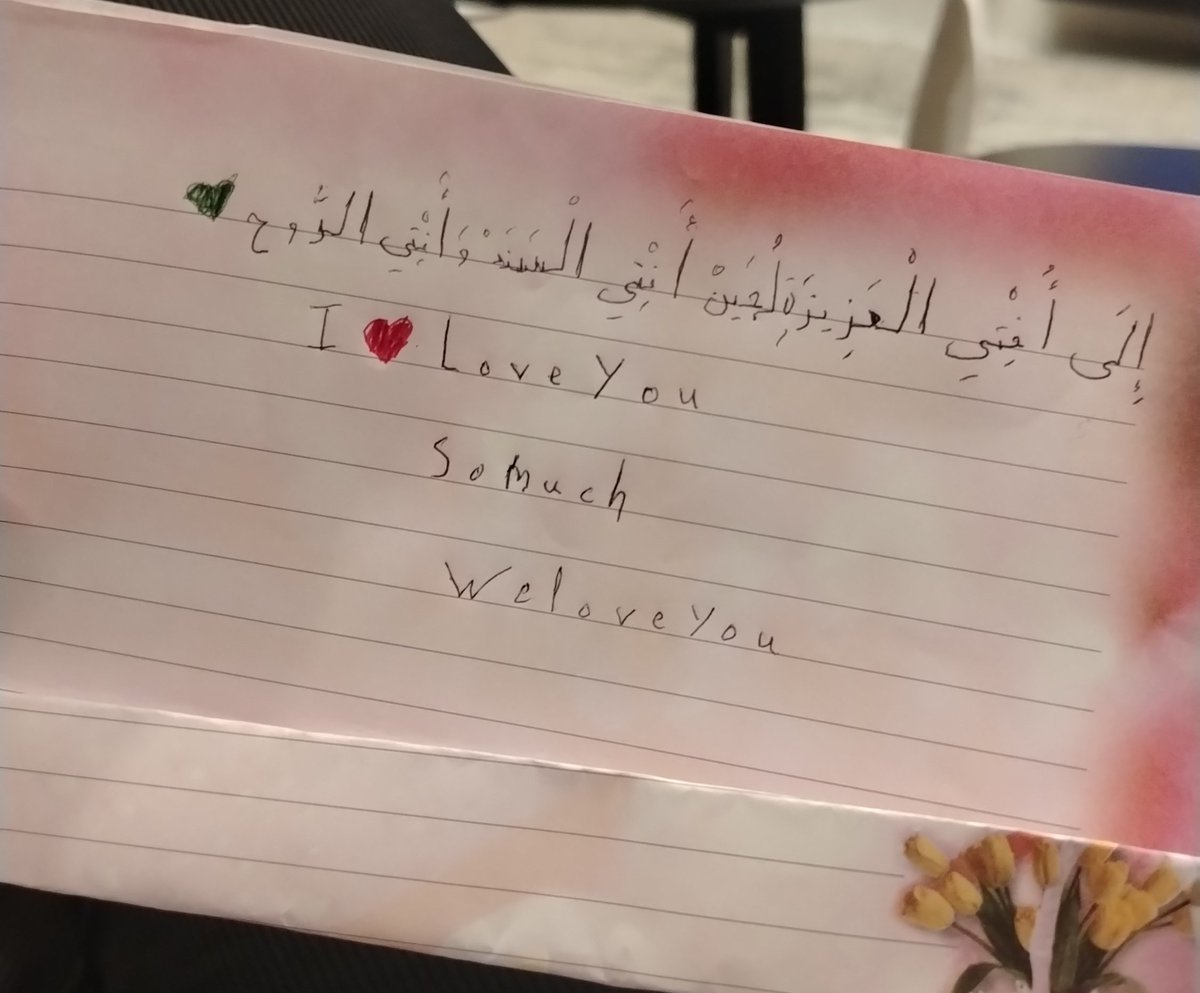 إِلَى أُخْتِي الْعَزِيزَةِ لُجَيْنْ أَنْتِي الْسَنَدْ وَأَنْتِي الرُّوح
I Love You
So much
We love You